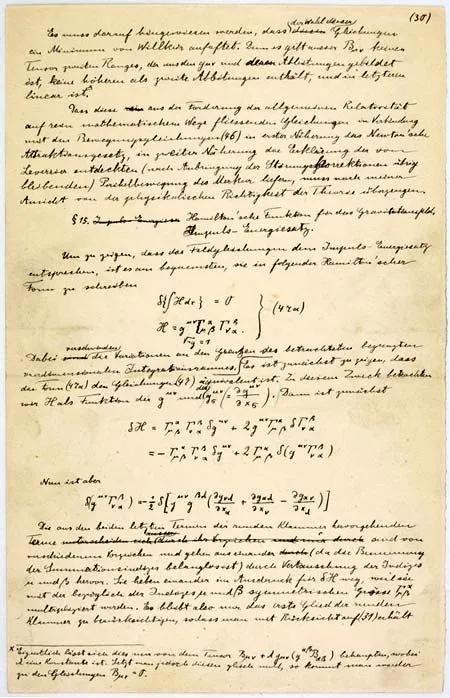 (30)
Es muss darauf hingewiesen werden, dass ~~diesen~~ der Wahl dieser Gleichungen
ein Minimum von Willkür anhaftet. Denn es gibt ausser Bμν keinen
Tensor zweiten Ranges, der aus den gμν und deren Ableitungen gebildet
ist, keine höheren als zweite Ableitungen enthält, und in letzteren
linear ist.ˣ
Dass diese aus der Forderung der allgemeinen Relativität
auf rein mathematischem Wege fliessenden Gleichungen in Verbindung
mit den Bewegungsgleichungen (46) in erster Näherung das Newton'sche
Attraktionsgesetz, in zweiter Näherung die Erklärung der von
Leverrier entdeckten (nach Anbringung der Störungskorrektionen übrig
bleibenden) Perihelbewegung des Merkur liefern, muss nach meiner
Ansicht von der physikalischen Richtigkeit der Theorie überzeugen.
§ 15. ~~Impuls-Energiesatz~~ Hamilton'sche Funktion für das Gravitationsfeld,
Impuls-Energiesatz.
Um zu zeigen, dass die Feldgleichungen dem Impuls-Energiesatz
entsprechen, ist es am bequemsten, sie in folgender Hamilton'scher
Form zu schreiben
δ{∫H dτ} = 0
H = g^μν Γ^α_μβ Γ^β_να } (47a)
√−g = 1
Dabei verschwinden die Variationen an den Grenzen des betrachteten begrenzten
vierdimensionalen Integrationsraumes. Es ist zunächst zu zeigen, dass
die Form (47a) den Gleichungen (47) äquivalent ist. Zu diesem Zweck betrachten
wir H als Funktion der g^μν und der g^μν_σ (= ∂g^μν/∂x_σ). Dann ist zunächst
δH = Γ^α_μβ Γ^β_να δg^μν + 2 g^μν Γ^α_μβ δΓ^β_να
= − Γ^α_μβ Γ^β_να δg^μν + 2 Γ^α_μβ δ(g^μν Γ^β_να)
Nun ist aber
δ(g^μν Γ^β_να) = −½ δ[g^μν g^βλ (∂g_νλ/∂x_α + ∂g_αλ/∂x_ν − ∂g_αν/∂x_λ)]
Die aus den beiden letzten Termen der runden Klammer hervorgehenden
Terme sind von
verschiedenem Vorzeichen und gehen auseinander ~~durch~~ (da die Benennung
der Summationsindizes belanglos ist) durch Vertauschung der Indizes
μ und β hervor. Sie heben einander im Ausdruck für δH weg, weil sie
mit der bezüglich der Indizes μ und β symmetrischen Grösse Γ^α_μβ
multipliziert werden. Es bleibt also nur das erste Glied der runden
Klammer zu berücksichtigen, sodass man mit Rücksicht auf (31) erhält
x Eigentlich lässt sich dies nur von dem Tensor Bμν + λ gμν (g^αβ Bαβ) behaupten, wobei
λ eine Konstante ist. Setzt man jedoch diesen gleich null, so kommt man wieder
zu den Gleichungen Bμν = 0.